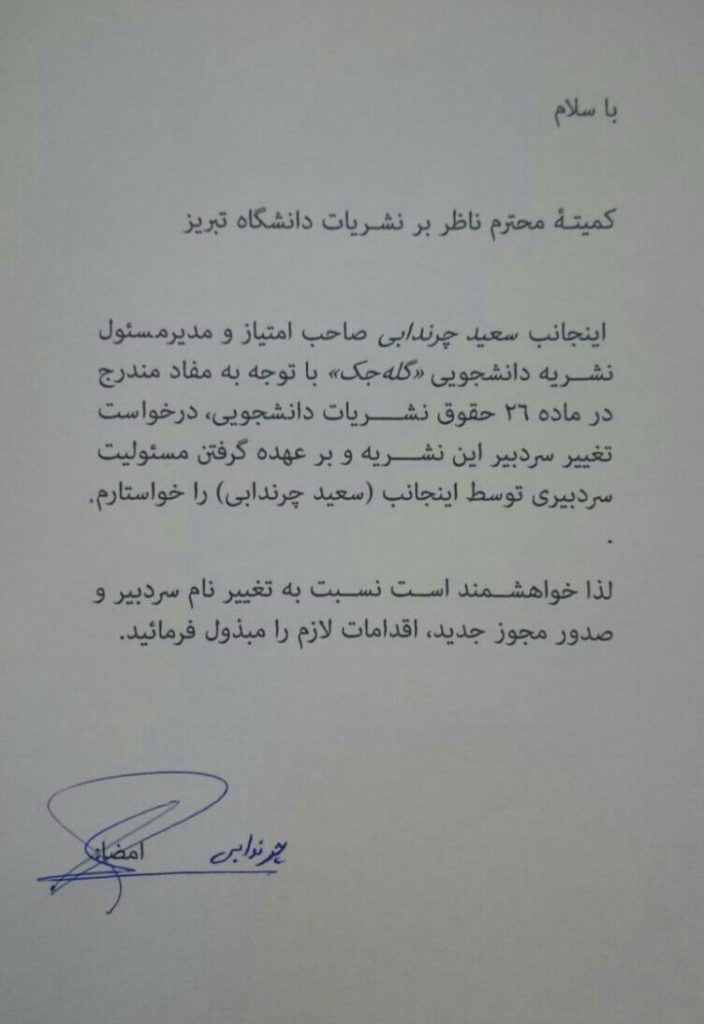 با سلام
کمیتـهٔ محترم ناظر بر نشـریات دانشگاه تبریز
اینجانب سعید چرندابی صاحب امتیاز و مدیرمسئول
نشـریه دانشجویی «گله‌جک» با توجه به مفاد مندرج
در ماده ۲٦ حقوق نشـــریات دانشجویی، درخواست
تغییر سردبیر این نشـــریه و بر عهده گرفتن مسئولیت
سردبیری توسط اینجانب (سعید چرندابی) را خواستارم.
.
لذا خواهشــمند اســت نسـبت به تغییر نام سردبیر و
صدور مجوز جدید، اقدامات لازم را مبذول فرمائید.
چرندابی امضاء